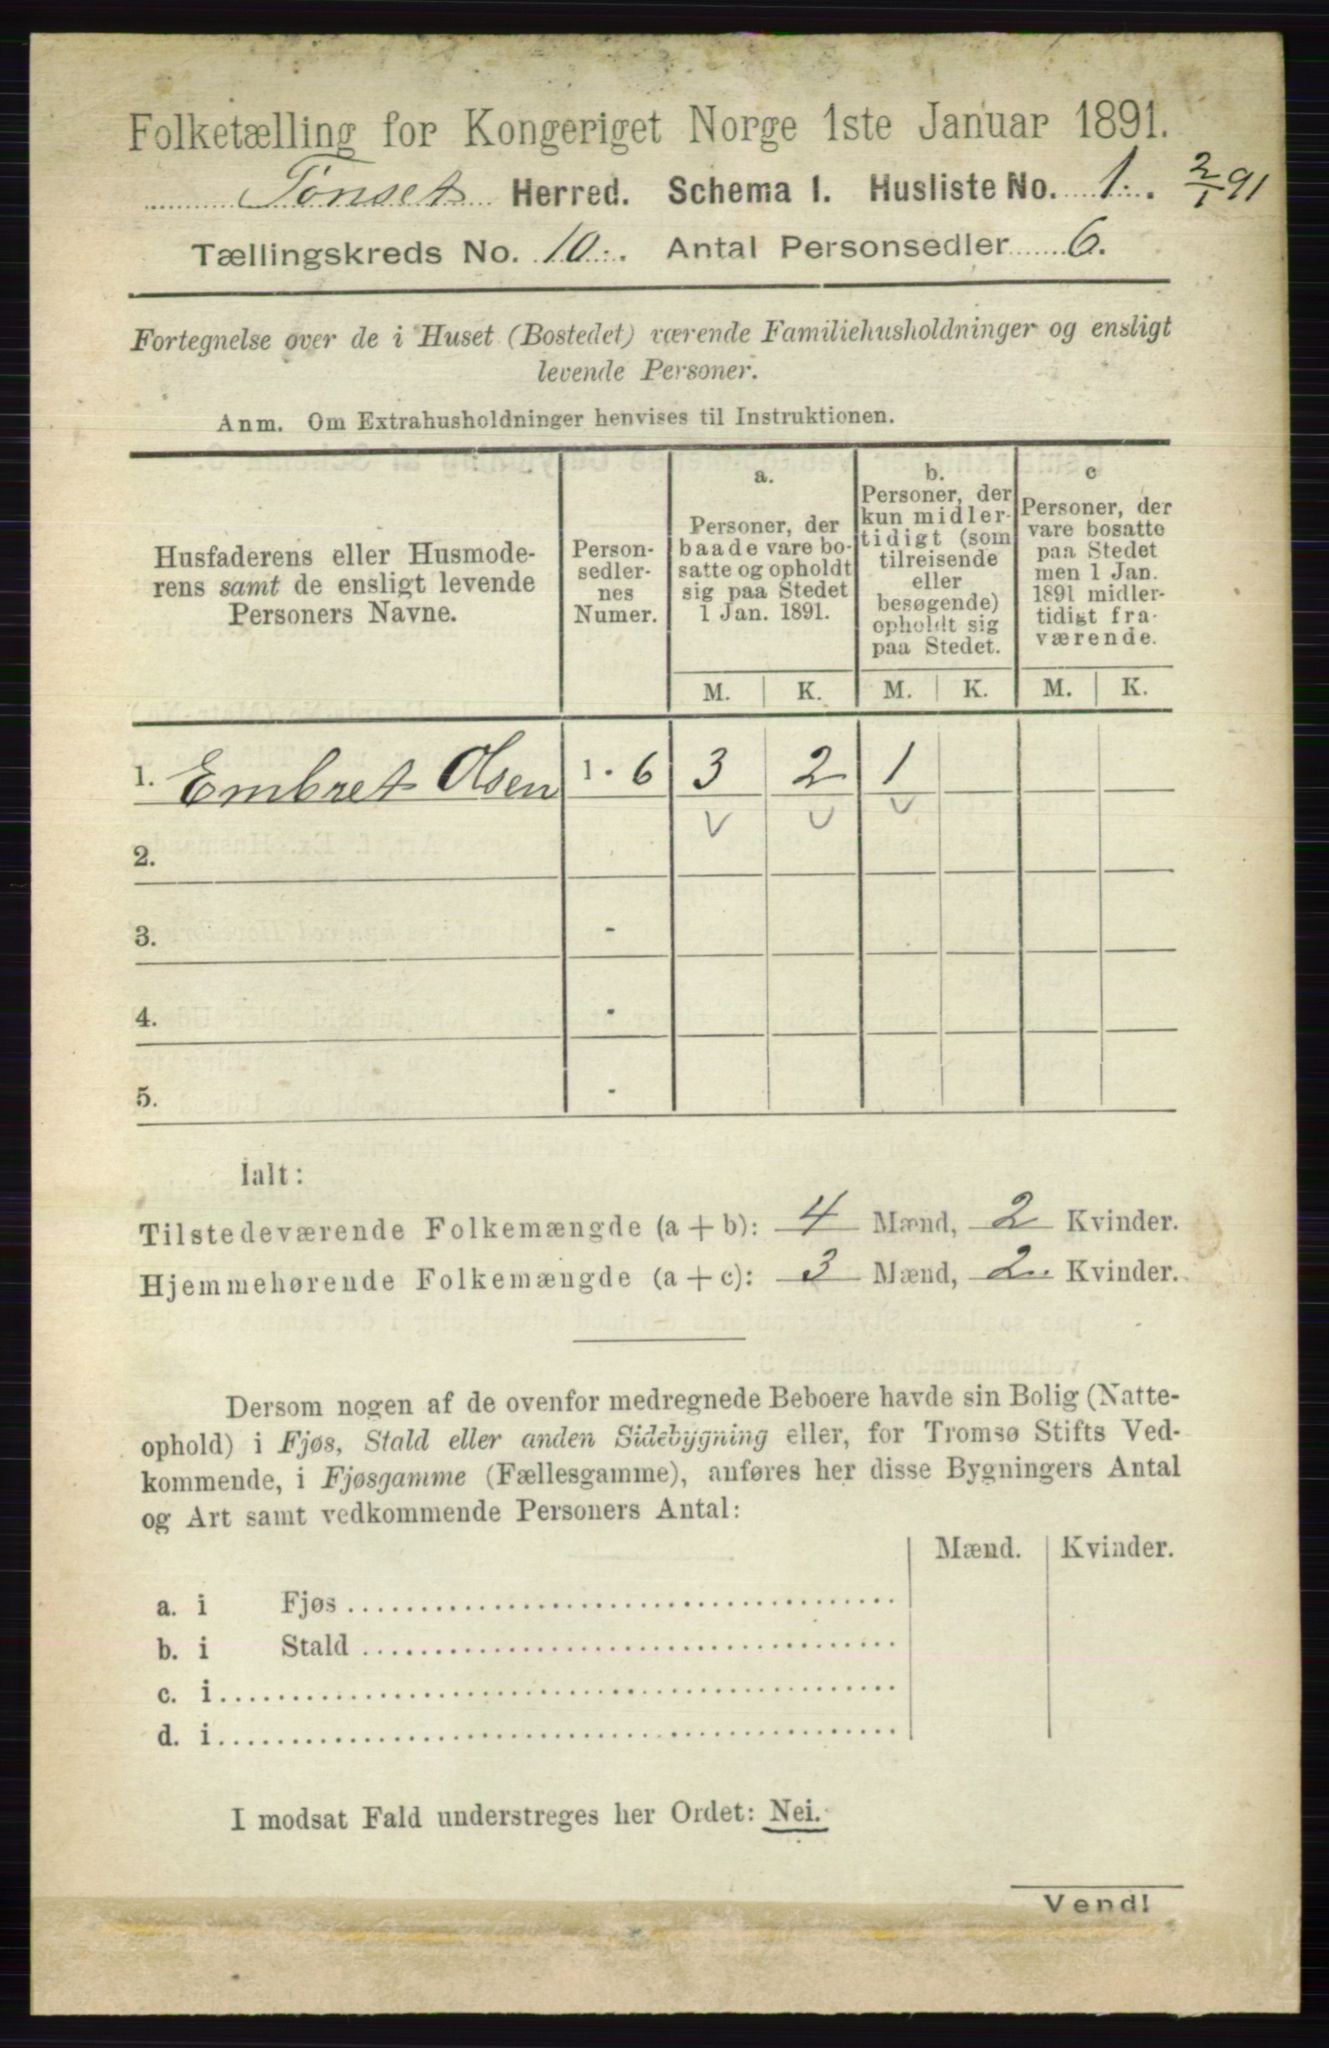 Folketælling for Kongeriget Norge 1ste Januar 1891.
Tønset Herred. Schema 1. Husliste No. 1. 2/1 91
Tællingskreds No. 10. Antal Personsedler 6.
Fortegnelse over de i Huset (Bostedet) værende Familiehusholdninger og ensligt
levende Personer.
Anm. Om Extrahusholdninger henvises til Instruktionen.
Husfaderens eller Husmode-
rens samt de ensligt levende
Personers Navne.
Person-
sedler-
nes
Numer.
a.
Personer, der
baade vare bo-
satte og opholdt
sig paa Stedet
1 Jan. 1891.
b.
Personer, der
kun midler-
tidigt (som
tilreisende
eller
besøgende)
opholdt sig
paa Stedet.
c
Personer, der
vare bosatte
paa Stedet
men 1 Jan.
1891 midler-
tidigt fra-
værende.
M. K. M. K. M. K.
1. Embret Olsen 1 - 6 3 2 1
2.
3. -
4. -
5. -
Ialt:
Tilstedeværende Folkemængde (a + b): 4 Mænd, 2 Kvinder.
Hjemmehørende Folkemængde (a + c): 3 Mænd, 2 Kvinder.
Dersom nogen af de ovenfor medregnede Beboere havde sin Bolig (Natte-
ophold) i Fjøs, Stald eller anden Sidebygning eller, for Tromsø Stifts Ved-
kommende, i Fjøsgamme (Fællesgamme), anføres her disse Bygningers Antal
og Art samt vedkommende Personers Antal:
Mænd. Kvinder.
a. i Fjøs
b. i Stald
c. i
d. i
I modsat Fald understreges her Ordet: Nei.
Vend!